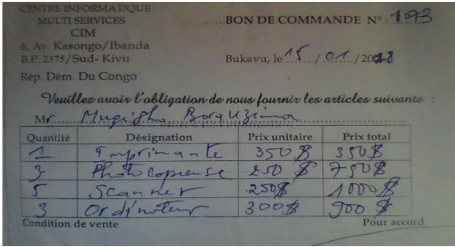 CENTRE INFORMATIQUE
MULTI SERVICES
CIM
6, Av. Kasongo/Ibanda
B.P. 2375/Sud-Kivu
Rép. Dém. Du Congo
BON DE COMMANDE N° : 193
Bukavu, le 15/01/2018
Veuillez avoir l'obligation de nous fournir les articles suivants :
Mr
Quantité Désignation Prix unitaire Prix total
1 Imprimante 350$ 350$
3 Photocopieuse 250$ 750$
5 Scanner 250$ 1000$
3 Ordinateur 300$ 900$
Condition de vente Pour accord